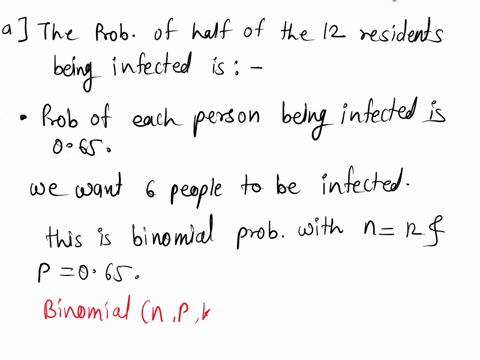 a] The Prob. of half of the 12 residents
being infected is : -
• Prob of each person being infected is
0.65.
we want 6 people to be infected.
this is binomial prob. with n = 12 &
P = 0.65.
Binomial (n, P,